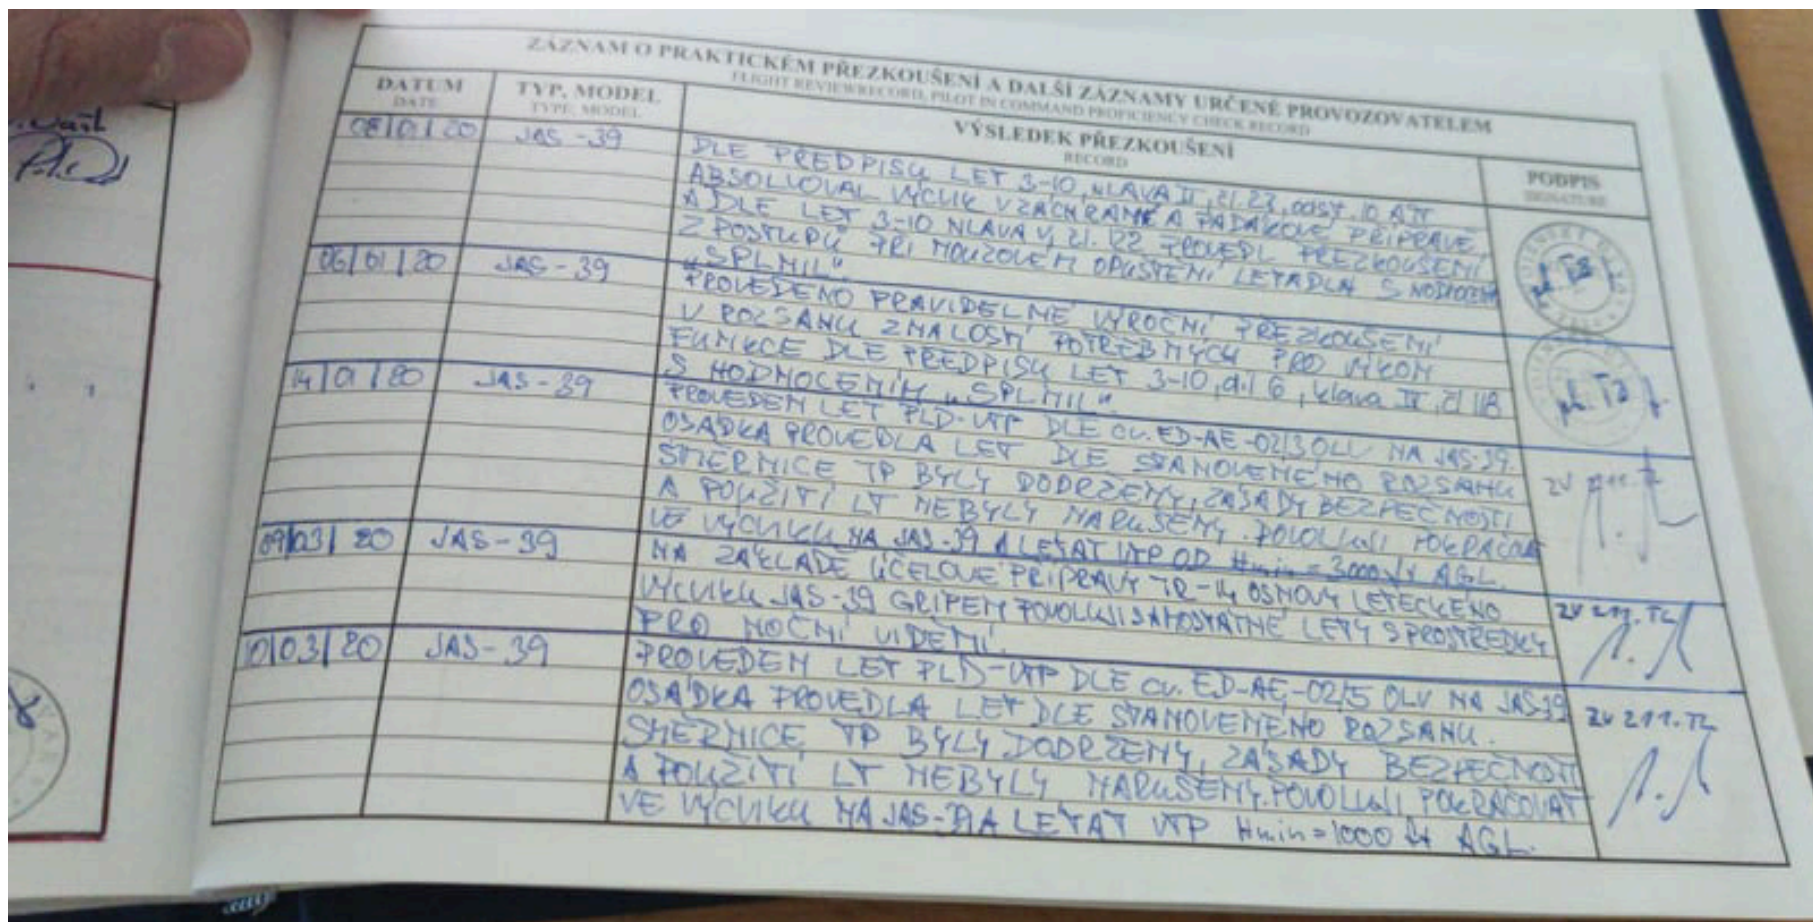 ZÁZNAM O PRAKTICKÉM PŘEZKOUŠENÍ A DALŠÍ ZÁZNAMY URČENÉ PROVOZOVATELEM
FLIGHT REVIEWRECORD, PILOT IN COMMAND PROFICIENCY CHECK RECORD
DATUM
DATE
TYP, MODEL
TYPE, MODEL
VÝSLEDEK PŘEZKOUŠENÍ
RECORD
PODPIS
SIGNATURE
JAS-39
DLE PŘEDPISU LET 3-10, HLAVA II, čl. 23, odst. 10 ATT
ABSOLVOVAL VÝCVIK V ZÁCHRANNÉ A PADÁKOVÉ PŘÍPRAVĚ
A DLE LET 3-10 HLAVA V, čl. 122 PROVEDL PŘEZKOUŠENÍ
Z POSTUPŮ PŘI NOUZOVÉM OPUŠTĚNÍ LETADLA S HODNOCENÍM
„SPLNIL“.
06/01/20 JAS-39
PROVEDENO PRAVIDELNÉ VÝROČNÍ PŘEZKOUŠENÍ
V ROZSAHU ZNALOSTÍ POTŘEBNÝCH PRO VÝKON
FUNKCE DLE PŘEDPISU LET 3-10, díl 6, hlava IV, čl 118
S HODNOCENÍM „SPLNIL“.
14/01/20 JAS-39
PROVEDEN LET PLD-VTP DLE cv. ED-AE-02/3 OLV NA JAS-39.
OSÁDKA PROVEDLA LET DLE STANOVENÉHO ROZSAHU
SMĚRNICE TP BYLY DODRŽENY, ZÁSADY BEZPEČNOSTI
A POUŽITÍ LT NEBYLY NARUŠENY. POVOLUJI POKRAČOVAT
VE VÝCVIKU NA JAS-39 A LÉTAT VTP OD Hmin = 3000 ft AGL.
ZV 211.TL
09/03/20 JAS-39
NA ZÁKLADĚ ÚČELOVÉ PŘÍPRAVY TR-14 OSNOVY LETECKÉHO
VÝCVIKU JAS-39 GRIPEN POVOLUJI SAMOSTATNÉ LETY S PROSTŘEDKY
PRO NOČNÍ VIDĚNÍ.
ZV 211.TL
10/03/20 JAS-39
PROVEDEN LET PLD-VTP DLE cv. ED-AE-02/5 OLV NA JAS-39
OSÁDKA PROVEDLA LET DLE STANOVENÉHO ROZSAHU.
SMĚRNICE TP BYLY DODRŽENY, ZÁSADY BEZPEČNOSTI
A POUŽITÍ LT NEBYLY NARUŠENY. POVOLUJI POKRAČOVAT
VE VÝCVIKU NA JAS-39 A LÉTAT VTP Hmin = 1000 ft AGL.
ZV 211.TL